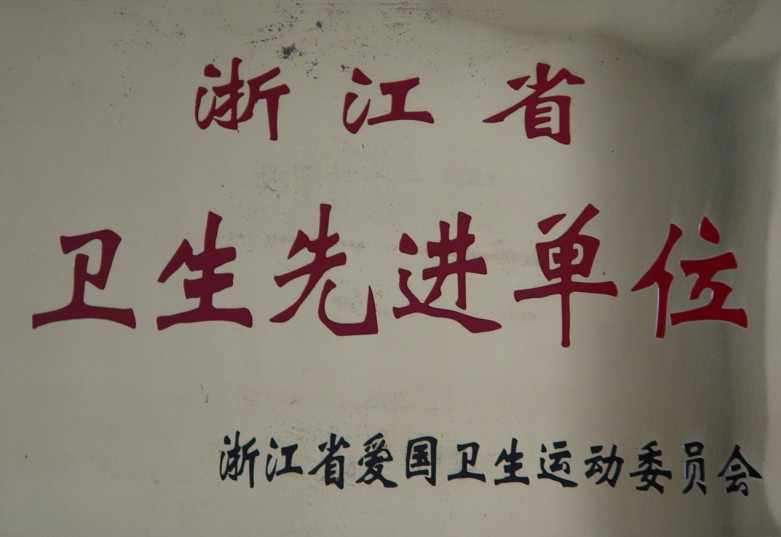 浙江省
卫生先进单位
浙江省爱国卫生运动委员会